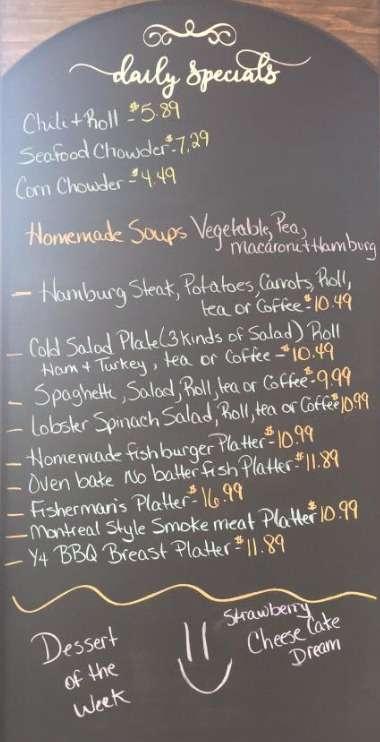 daily specials
Chili + Roll - $5.89
Seafood Chowder $-7.29
Corn Chowder - $4.49
Homemade Soups Vegetable, Pea,
Macaroni + Hamburg
- Hamburg Steak, Potatoes, Carrots, Roll,
tea or Coffee - $10.49
- Cold Salad Plate (3 kinds of Salad) Roll
Ham + Turkey, tea or Coffee - $10.49
- Spaghetti, Salad, Roll, tea or Coffee - $9.99
- Lobster Spinach Salad, Roll, tea or Coffee $10.99
- Homemade fishburger Platter - $10.99
- Oven bake No batter fish Platter - $11.89
- Fisherman's Platter - $16.99
- Montreal Style Smoke meat Platter $10.99
- 1/4 BBQ Breast Platter - $11.89
Dessert
of the
Week
Strawberry
Cheese Cake
Dream